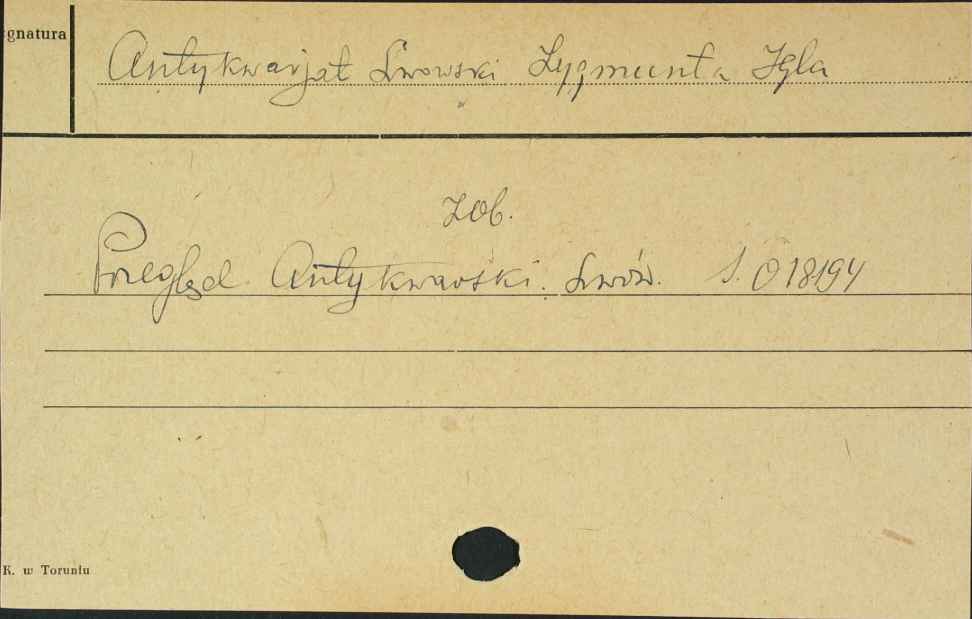 gnatura
Antykwarjat Lwowski Zygmunta Igla
zob.
Przegląd Antykwarski. Lwów. S. 018194
K. w Toruniu